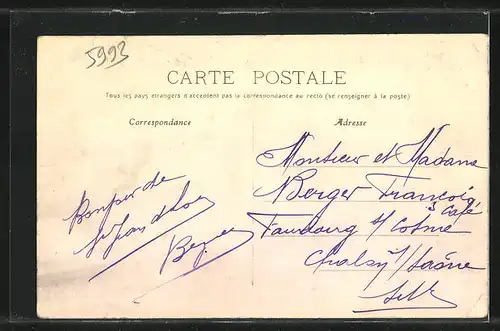 5993
CARTE POSTALE
Tous les pays étrangers n'acceptent pas la correspondance au recto (se renseigner à la poste)
Correspondance
Adresse
Bonjour de
Monsieur et Madame
Berger François
à Café
Faubourg s/ Cosme
s/ Saône